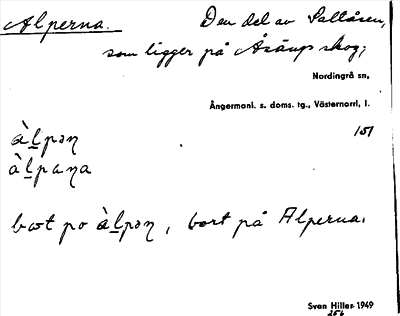 Alperna. Den del av Saltåsen,
som ligger på Åsäng skog;
Nordingrå sn,
Ångermanl. s. doms. tg., Västernorrl. l.
151
àl̲pəɳ
àl̲paɳa
bot po àl̲pəɳ, bort på Alperna.
Sven Hiller 1949
256